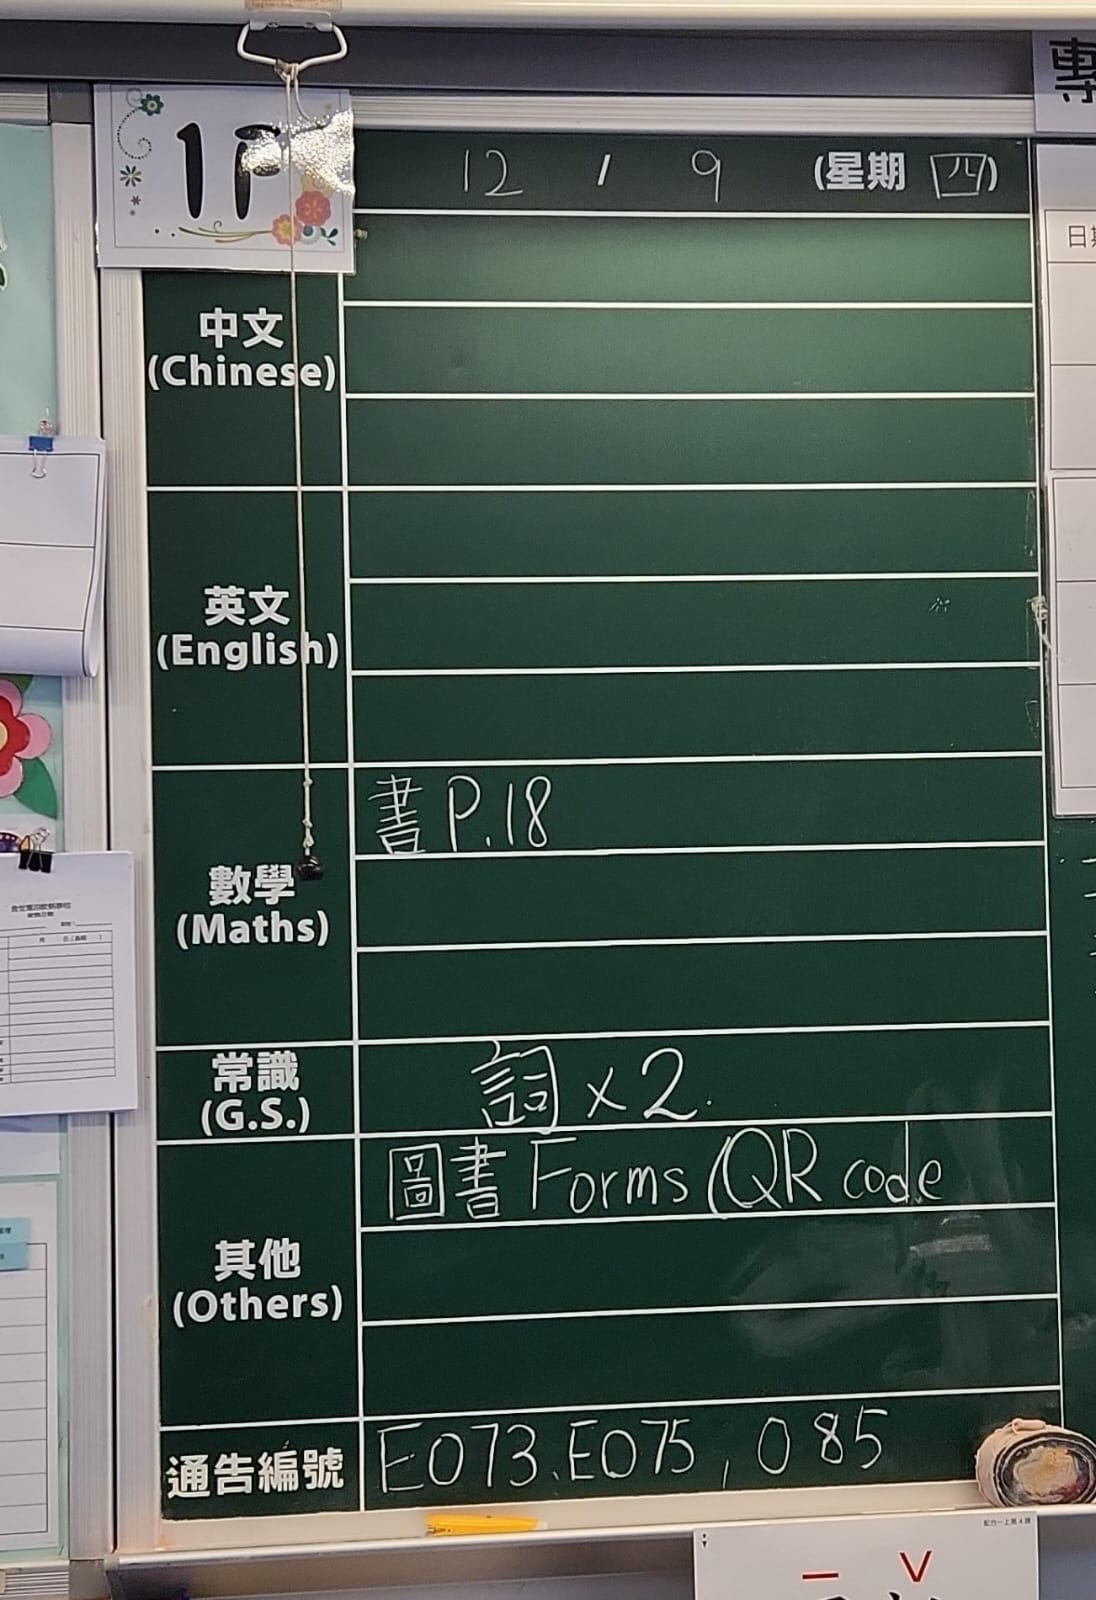 12 / 9 (星期 四)
中文
(Chinese)
英文
(English)
數學
(Maths)
書 P.18
常識
(G.S.)
詞 x 2.
其他
(Others)
圖書 Forms (QR code
通告編號
E073、E075, 085